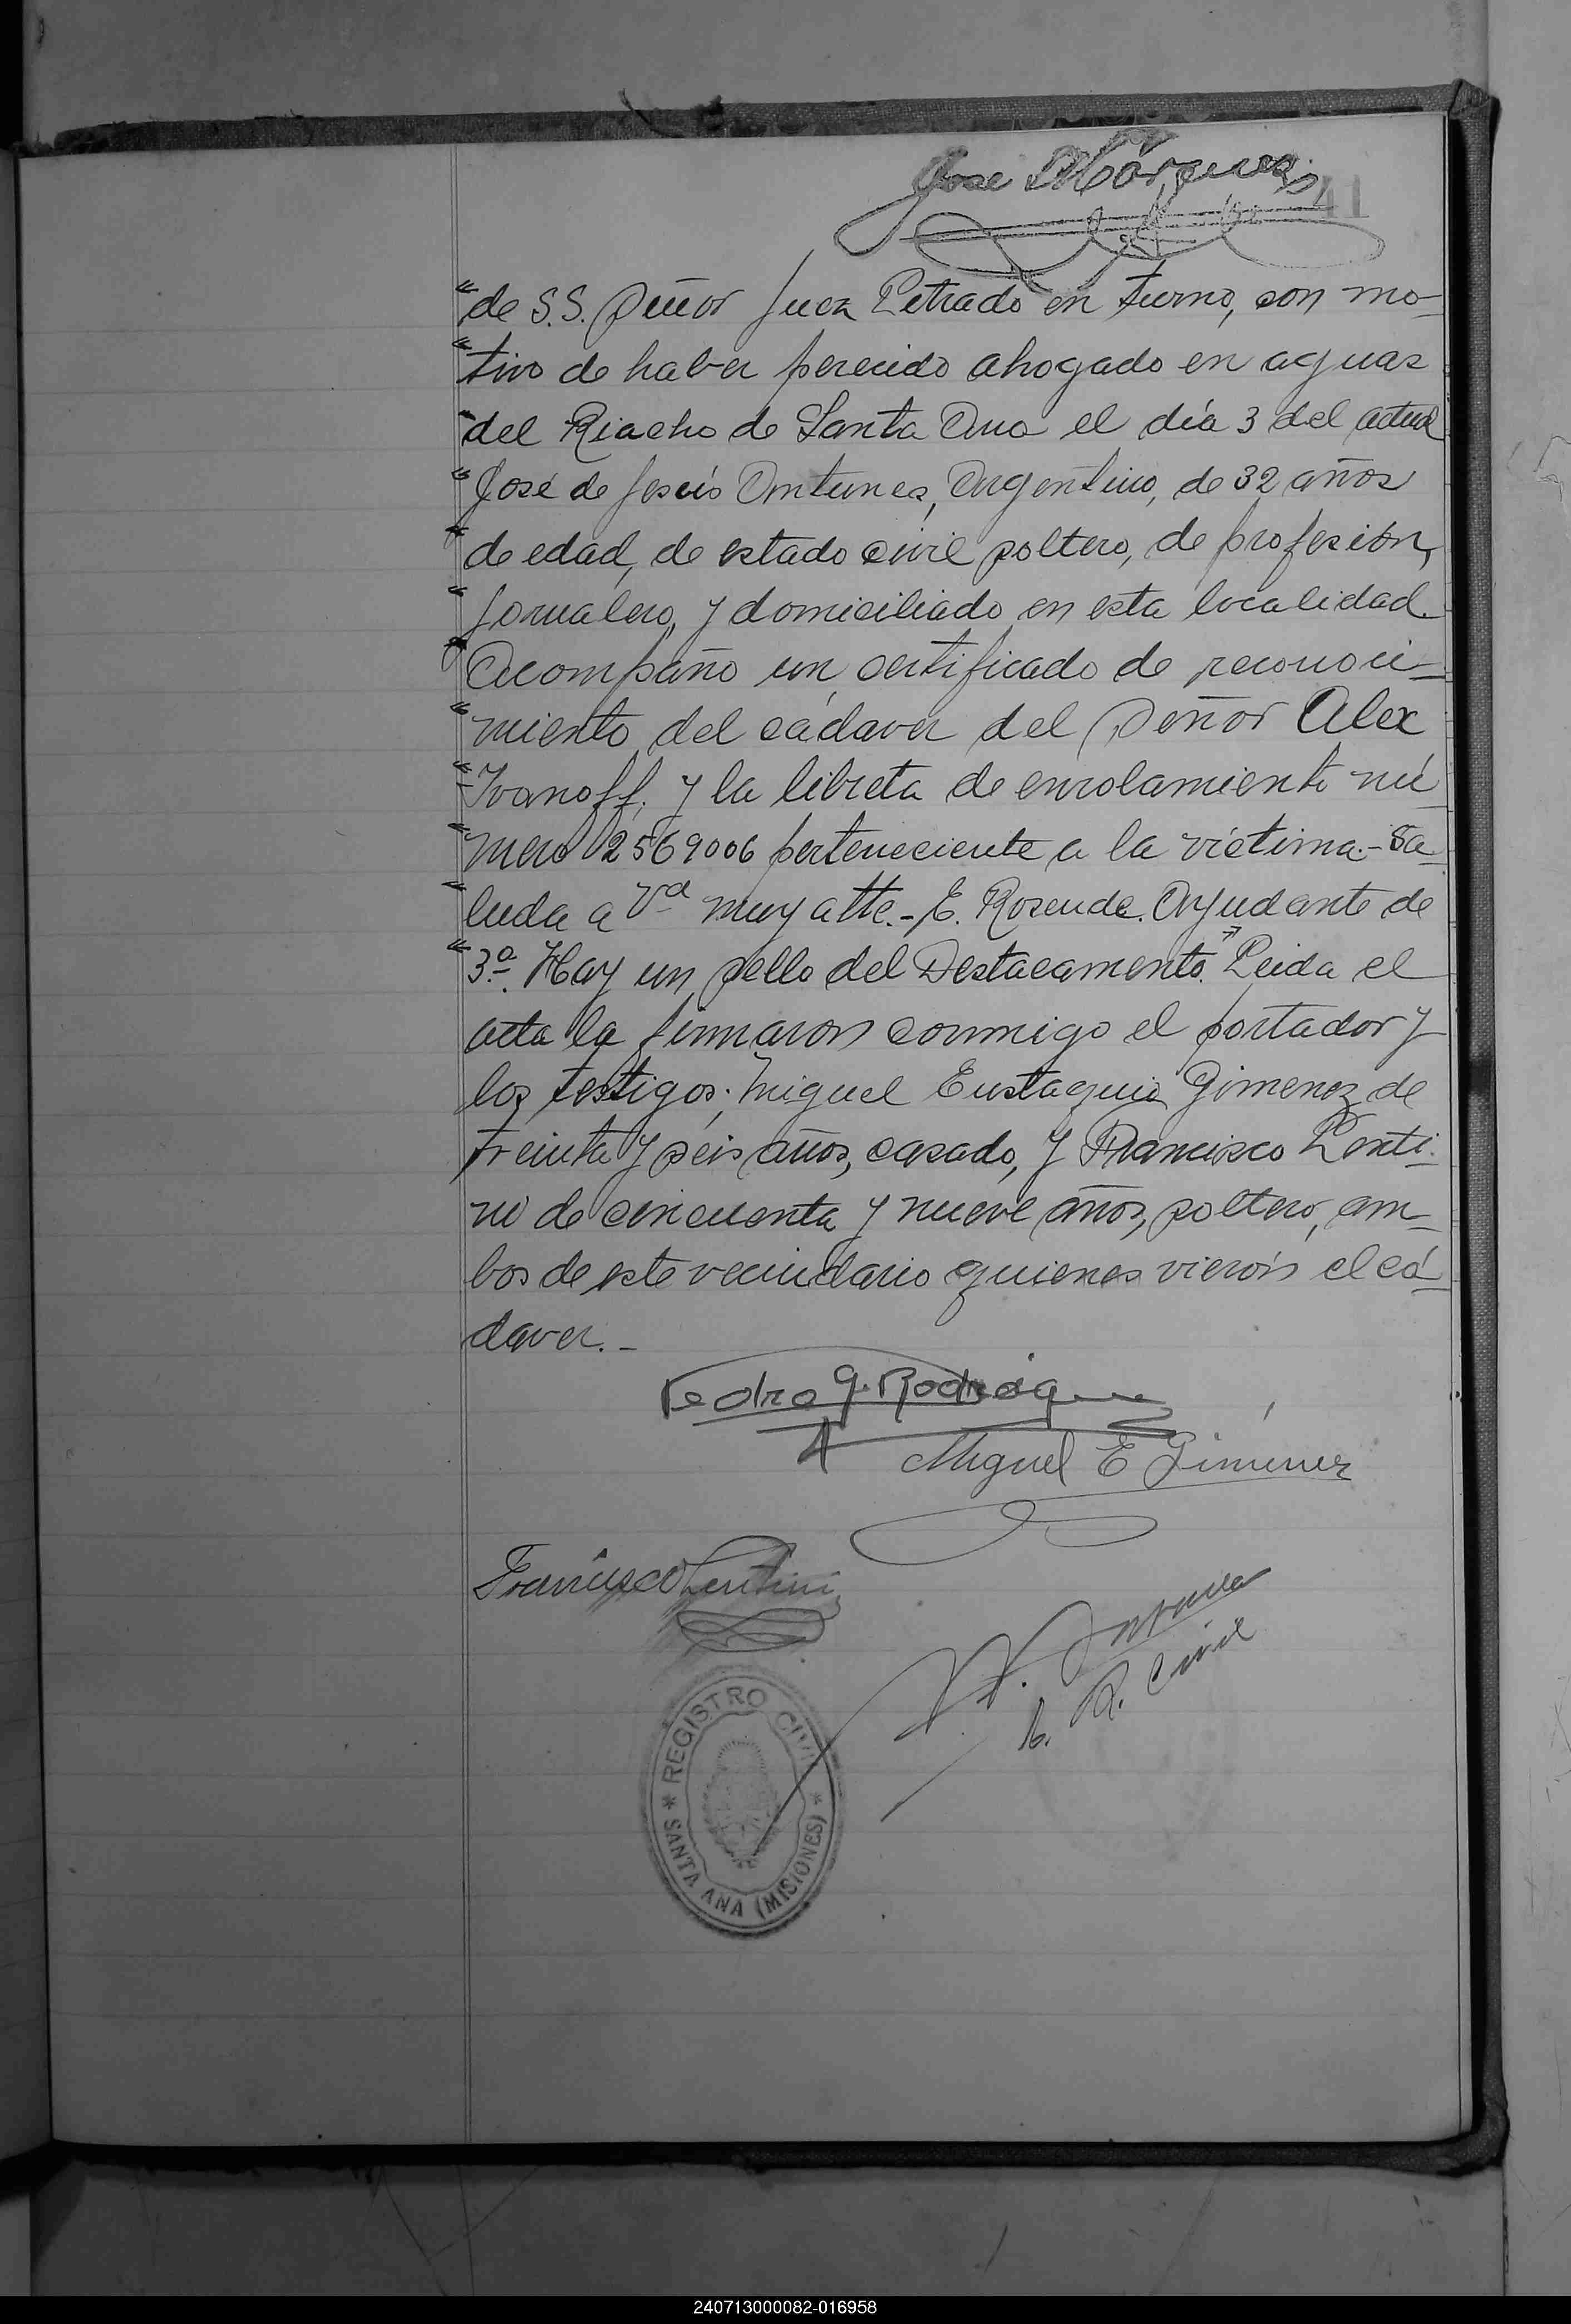 Jose Márquez
41
"de S.S. Señor Juez Letrado en turno, con mo-
"tivo de haber perecido ahogado en aguas
"del Riacho de Santa Ana el día 3 del actual
"José de Jesús Antunes, Argentino, de 32 años
"de edad, de estado civil soltero, de profesión,
"jornalero, y domiciliado en esta localidad.
"Acompaño un certificado de reconoci-
"miento del cádaver del Señor Alex
"Ivanoff. y la libreta de enrolamiento nú
"mero 2569006 perteneciente a la víctima.- Sa-
"luda a Vd muy atte.- E. Rosende. Ayudante de
"3a. Hay un sello del Destacamento." Leida el
acta la firmaron conmigo el portador y
los testigos: Miguel Eustaquio Gimenez de
treinta y seis años, casado, y Francisco Lenti-
ni de cincuenta y nueve años, soltero, am-
bos de este vecindario quienes vieron el cá-
daver.-
Pedro G. Rodriguez
Miguel E Gimenez
Francisco Lentini
R. Civil
REGISTRO CIVIL
* SANTA ANA (MISIONES) *
240713000082-016958